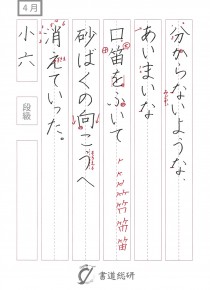 4月
分からないような
あいまいな
口笛をふいて
砂ばくの向こうへ
消えていった。
小六
段級
書道総研